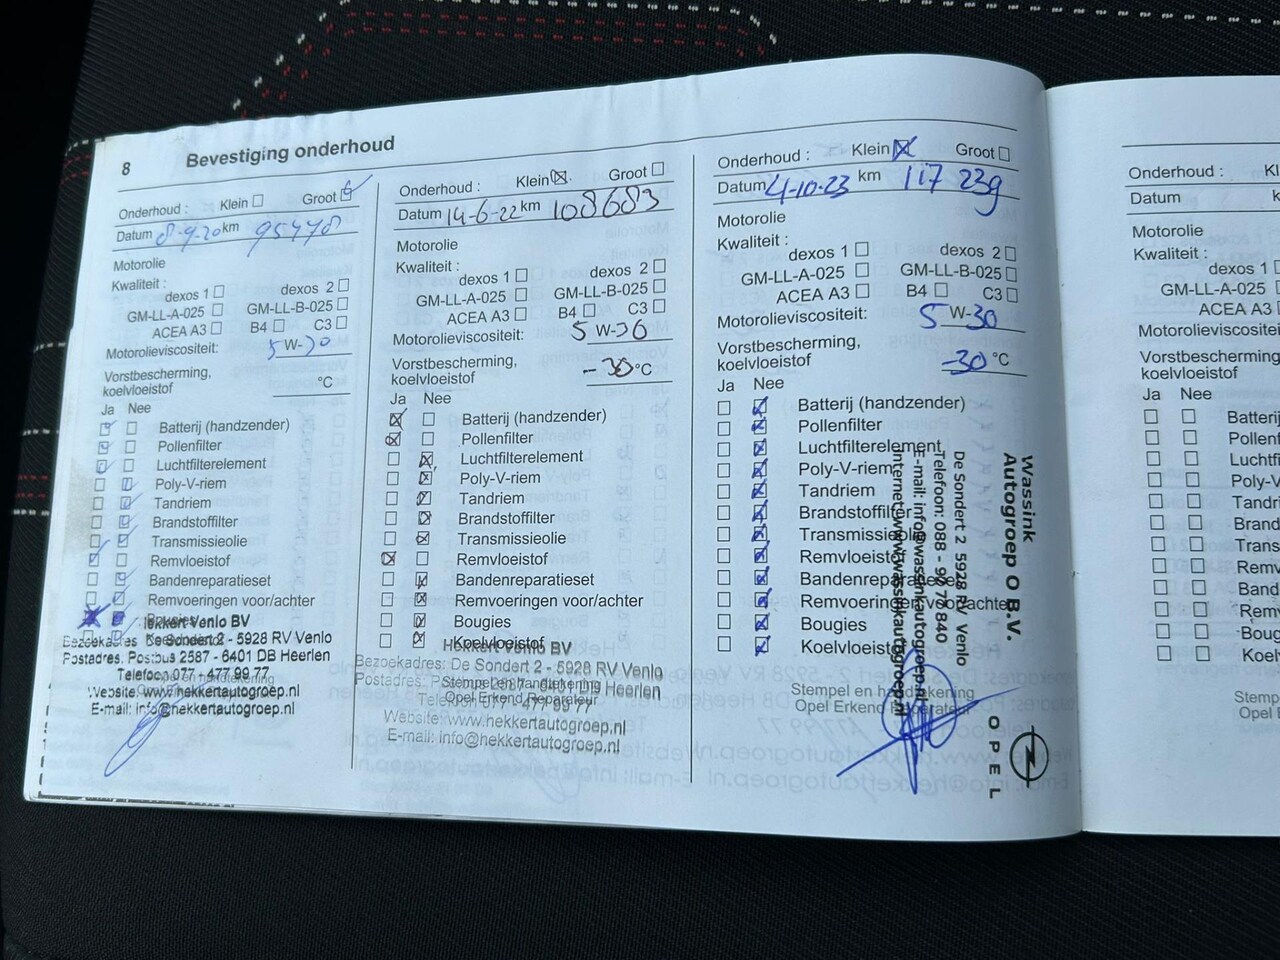 8 Bevestiging onderhoud
Onderhoud : Klein Groot
Datum 8-9-20 km 95478
Motorolie
Kwaliteit :
dexos 1 dexos 2
GM-LL-A-025 GM-LL-B-025
ACEA A3 B4 C3
Motorolieviscositeit: 5 W-30
Vorstbescherming,
koelvloeistof °C
Ja Nee
Batterij (handzender)
Pollenfilter
Luchtfilterelement
Poly-V-riem
Tandriem
Brandstoffilter
Transmissieolie
Remvloeistof
Bandenreparatieset
Remvoeringen voor/achter
Hekkert Venlo BV
Bezoekadres: De Sondert 2 - 5928 RV Venlo
Postadres: Postbus 2587 - 6401 DB Heerlen
Telefoon 077 - 477 99 77
Website: www.hekkertautogroep.nl
E-mail: info@hekkertautogroep.nl
Onderhoud : Klein Groot
Datum 14-6-22 km 108683
Motorolie
Kwaliteit :
dexos 1 dexos 2
GM-LL-A-025 GM-LL-B-025
ACEA A3 B4 C3
Motorolieviscositeit: 5 W-30
Vorstbescherming,
koelvloeistof -30 °C
Ja Nee
Batterij (handzender)
Pollenfilter
Luchtfilterelement
Poly-V-riem
Tandriem
Brandstoffilter
Transmissieolie
Remvloeistof
Bandenreparatieset
Remvoeringen voor/achter
Bougies
Koelvloeistof
Hekkert Venlo BV
Bezoekadres: De Sondert 2 - 5928 RV Venlo
Postadres: Postbus 2587 - 6401 DB Heerlen
Stempel en handtekening
Opel Erkend Reparateur
Telefoon 077 - 477 99 77
Website: www.hekkertautogroep.nl
E-mail: info@hekkertautogroep.nl
Onderhoud : Klein Groot
Datum 4-10-23 km 117 239
Motorolie
Kwaliteit :
dexos 1 dexos 2
GM-LL-A-025 GM-LL-B-025
ACEA A3 B4 C3
Motorolieviscositeit: 5 W-30
Vorstbescherming,
koelvloeistof -30 °C
Ja Nee
Batterij (handzender)
Pollenfilter
Luchtfilterelement
Poly-V-riem
Tandriem
Brandstoffilter
Transmissieolie
Remvloeistof
Bandenreparatieset
Remvoeringen voor/achter
Bougies
Koelvloeistof
Stempel en handtekening
Opel Erkend Reparateur
Wassink
Autogroep O B.V.
De Sondert 2 5928 RV Venlo
Telefoon: 088 - 90 770 840
E-mail: info@wassinkautogroep.nl
Internet: www.wassinkautogroep.nl
OPEL
Onderhoud : K
Datum
Motorolie
Kwaliteit :
dexos 1
GM-LL-A-025
ACEA A3
Motorolieviscositeit
Vorstbescherming
koelvloeistof
Ja Nee
Batteri
Pollenf
Luchtfi
Poly-V
Tandri
Brand
Trans
Remv
Band
Rem
Boug
Koel
Stemp
Opel